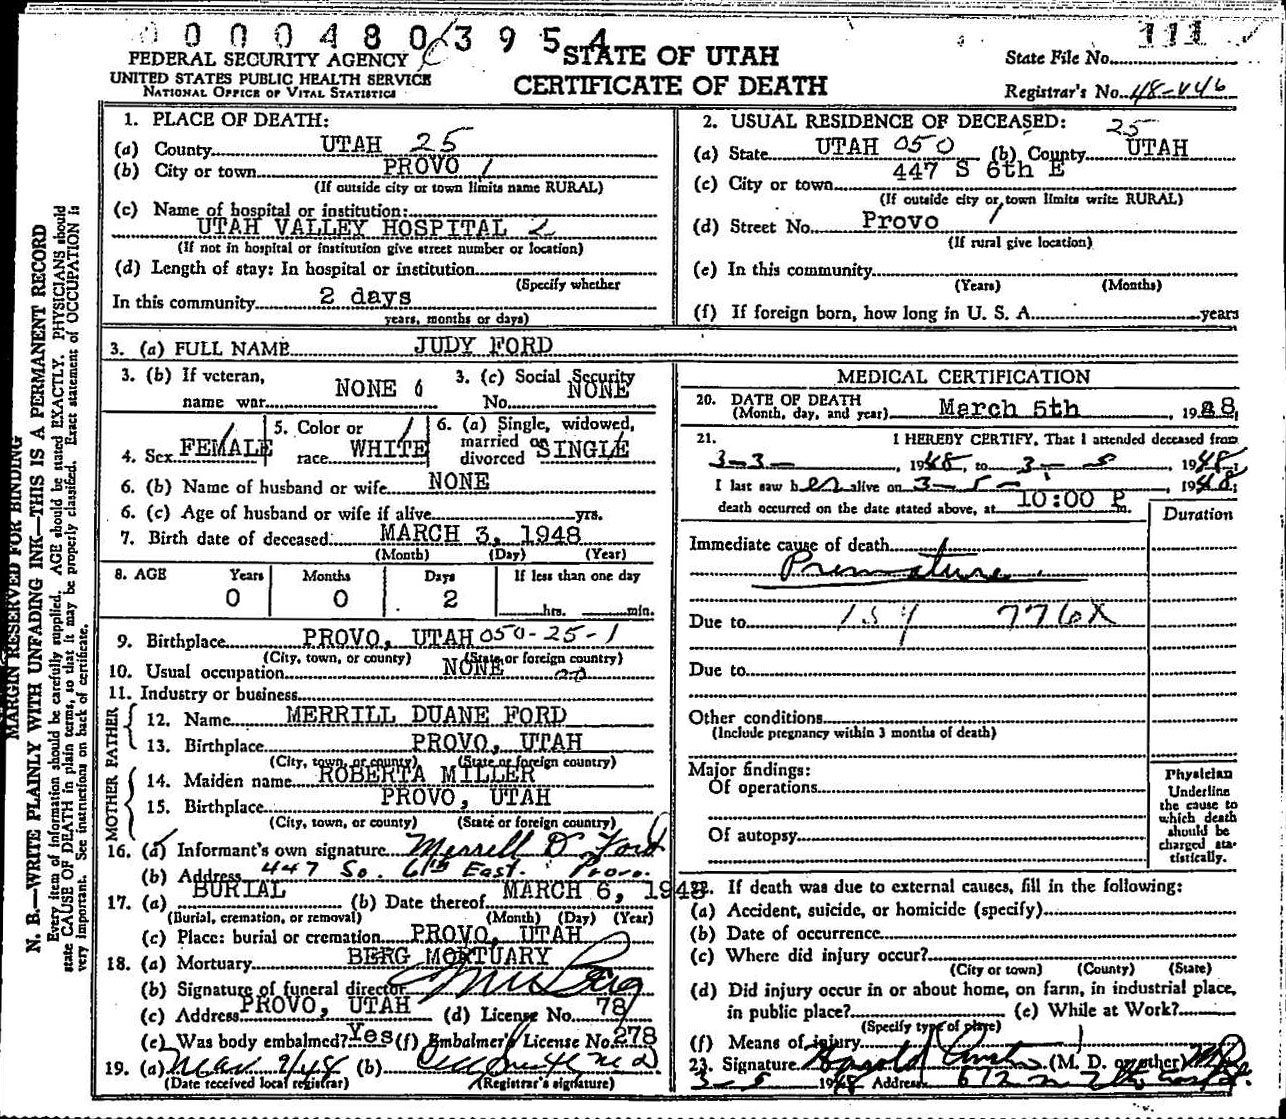 0 0 0 0 4 8 0 3 9 5 4
FEDERAL SECURITY AGENCY
UNITED STATES PUBLIC HEALTH SERVICE
NATIONAL OFFICE OF VITAL STATISTICS
STATE OF UTAH
CERTIFICATE OF DEATH
111
State File No.
Registrar's No. 48-
MARGIN RESERVED FOR BINDING
N. B.—WRITE PLAINLY WITH UNFADING INK—THIS IS A PERMANENT RECORD
Every item of information should be carefully supplied. AGE should be stated EXACTLY. PHYSICIANS should
state CAUSE OF DEATH in plain terms, so that it may be properly classified. Exact statement of OCCUPATION is
very important. See instructions on back of certificate.
1. PLACE OF DEATH:
(a) County UTAH 25
(b) City or town PROVO 1
(If outside city or town limits name RURAL)
(c) Name of hospital or institution:
UTAH VALLEY HOSPITAL 2
(If not in hospital or institution give street number or location)
(d) Length of stay: In hospital or institution
(Specify whether
In this community 2 days
years, months or days)
2. USUAL RESIDENCE OF DECEASED:
25
(a) State UTAH 050 (b) County UTAH
(c) City or town 447 S 6th E
(If outside city or town limits write RURAL)
(d) Street No. Provo 1
(If rural give location)
(e) In this community
(Years) (Months)
(f) If foreign born, how long in U. S. A. years
3. (a) FULL NAME JUDY FORD
3. (b) If veteran, name war NONE 3. (c) Social Security No. NONE
4. Sex FEMALE 5. Color or race WHITE 6. (a) Single, widowed, married or divorced SINGLE
6. (b) Name of husband or wife NONE
6. (c) Age of husband or wife if alive yrs.
7. Birth date of deceased MARCH 3, 1948
(Month) (Day) (Year)
8. AGE Years Months Days If less than one day
0 0 2 hrs. min.
9. Birthplace PROVO, UTAH 050-25-1
(City, town, or county) (State or foreign country)
10. Usual occupation NONE
11. Industry or business
FATHER
12. Name MERRILL DUANE FORD
13. Birthplace PROVO, UTAH
(City, town, or county) (State or foreign country)
MOTHER
14. Maiden name ROBERTA MILLER
15. Birthplace PROVO, UTAH
(City, town, or county) (State or foreign country)
16. (a) Informant's own signature Merrell D Ford
(b) Address 447 So. 6th East. Provo.
17. (a) BURIAL (b) Date thereof MARCH 6, 1948
(Burial, cremation, or removal) (Month) (Day) (Year)
(c) Place: burial or cremation PROVO, UTAH
18. (a) Mortuary BERG MORTUARY
(b) Signature of funeral director Berg
(c) Address PROVO, UTAH (d) License No. 78
(e) Was body embalmed? Yes (f) Embalmer License No. 278
19. (a) Mar 9/48 (b)
(Date received local registrar) (Registrar's signature)
MEDICAL CERTIFICATION
20. DATE OF DEATH
(Month, day, and year) March 5th, 1948
21. I HEREBY CERTIFY, That I attended deceased from
3-3-, 1948, to 3-5, 1948;
I last saw her alive on 3-5-, 1948;
death occurred on the date stated above, at 10:00 P m.
Duration
Immediate cause of death
Premature
Due to 159 776X
Due to
Other conditions
(Include pregnancy within 3 months of death)
Major findings:
Of operations
Of autopsy
Physician
Underline
the cause to
which death
should be
charged sta-
tistically.
22. If death was due to external causes, fill in the following:
(a) Accident, suicide, or homicide (specify)
(b) Date of occurrence
(c) Where did injury occur?
(City or town) (County) (State)
(d) Did injury occur in or about home, on farm, in industrial place,
in public place? (e) While at Work?
(Specify type of place)
(f) Means of injury
23. Signature Harold (M. D. or other) MD
3-5 1948 Address 672 n